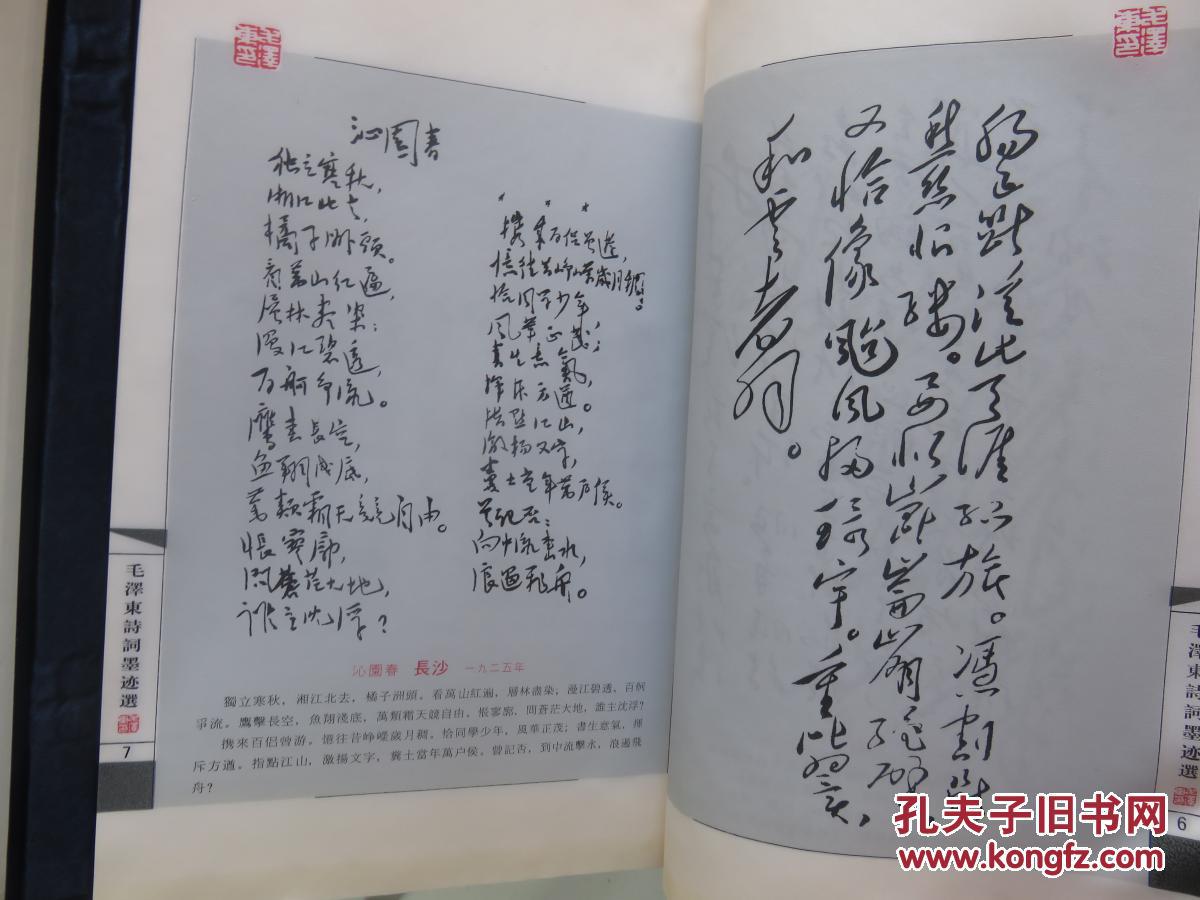 沁園春
独立寒秋，
湘江北去，
橘子洲頭。
看萬山红遍，
层林尽染；
漫江碧透，
百舸争流。
鷹击長空，
鱼翔浅底，
萬類霜天競自由。
悵寥廓，
问蒼茫大地，
谁主沈浮？
* * *
携来百侣曾遊，
憶往昔峥嵘歲月稠。
恰同学少年，
风华正茂；
书生意氣，
挥斥方遒。
指点江山，
激扬文字，
粪土当年万户侯。
曾记否：
向中流击水，
浪遏飛舟。
沁園春 長沙 一九二五年
獨立寒秋，湘江北去，橘子洲頭。看萬山紅遍，層林盡染；漫江碧透，百舸
爭流。鷹擊長空，魚翔淺底，萬類霜天競自由。悵寥廓，問蒼茫大地，誰主沈浮？
携來百侣曾游。憶往昔崢嶸歲月稠。恰同學少年，風華正茂；書生意氣，揮
斥方遒。指點江山，激揚文字，糞土當年萬户侯。曾記否，到中流擊水，浪遏飛
舟？
毛澤東詩詞墨迹選
7
肠已断從此天涯孤旅。馮割断
愁丝恨缕。要似崑崙崩绝壁，
又恰像颱风扫環宇。重比翼，
和雲翥
毛澤東詩詞墨迹選
6
孔夫子旧书网
www.kongfz.com